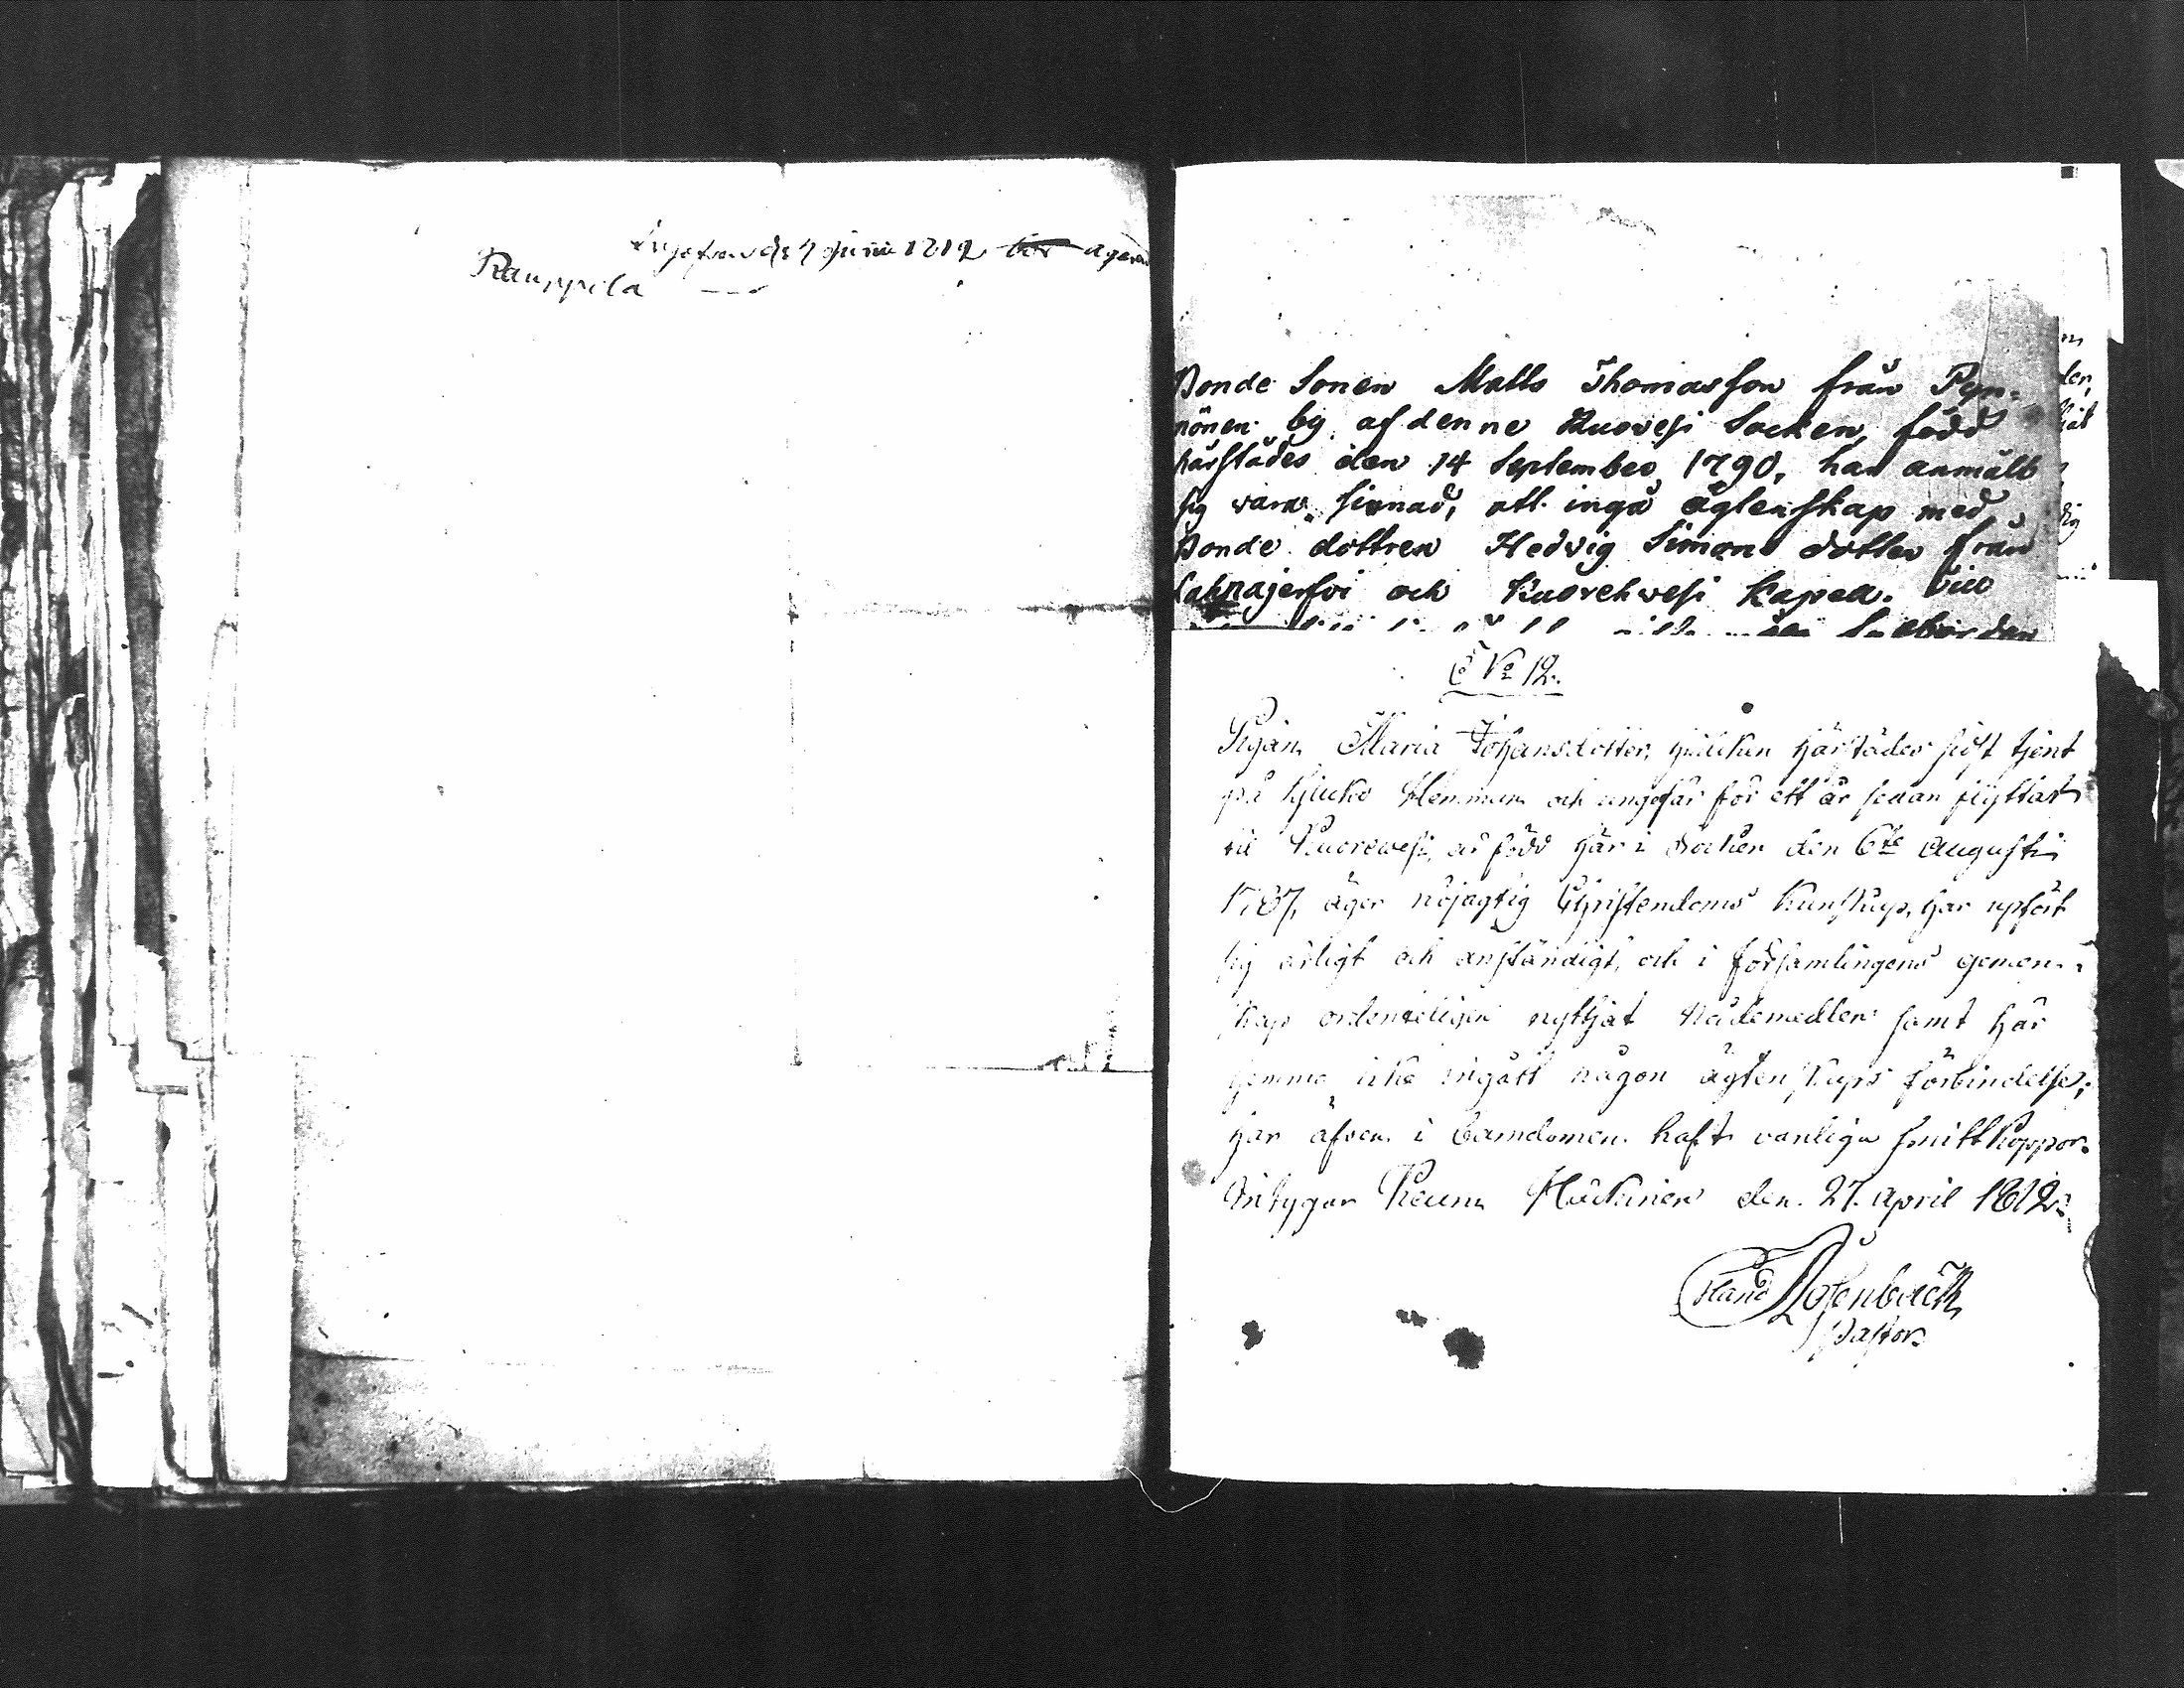 d: 7 Junii 1812
Rauppila
Bonde Sonen Matts Thomasson från Pyn-
nönen by af denne Ruovesi Socken, född
härstädes den 14 September 1790, har anmält
sig vara sinnad, att ingå äglenskap med
Bonde dottren Hedvig Simons dotter från
Lahnajerfvi och Kuorehvesi Kapell. Til
N:o 12.
Pigan Maria Johansdotter, hvilken härstädes sist tjent
på Hemman och ungefär för ett år sedan flyttat
til Kuorevesi, är född här i Socken den 6:te Augusti
1787, äger nöjagtig Christendoms Kunskap, har upfört
sig ärligt och anständigt, och i församlingens gemen-
skap ordenteligen nyttjat Nådemedlen samt här
hemma icke ingått någon ägtenskaps förbindelse;
har äfven i barndomen haft vanliga smittkoppor.
Intygar Keuru den 27. April 1812.
Rosenback
Pastor